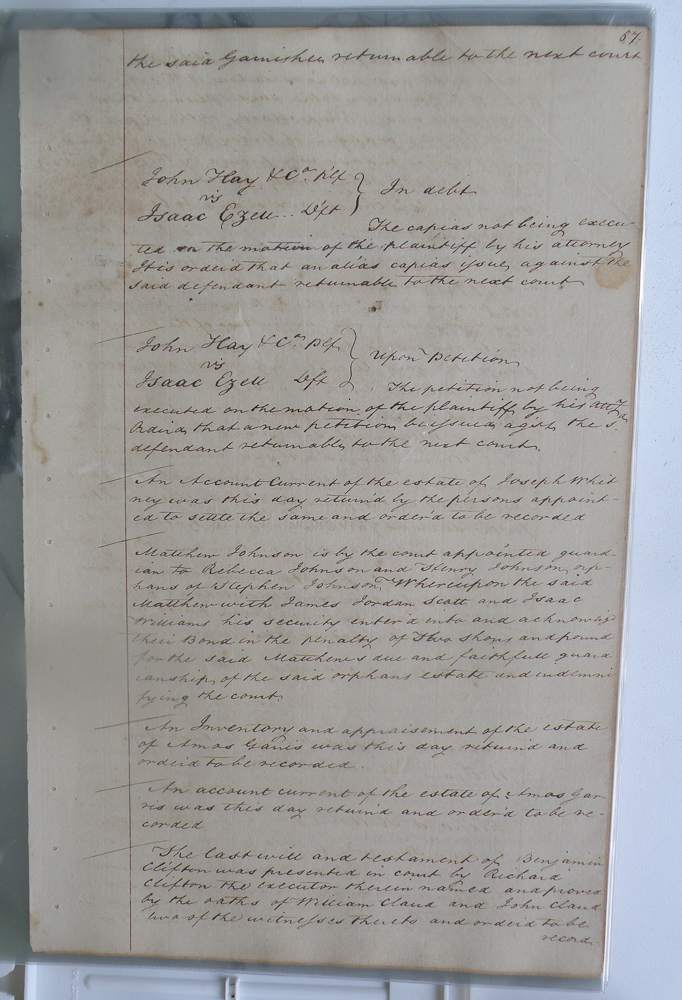 57.
the said Garnishee returnable to the next court
John Hay & Co. Plt } In debt
vs
Isaac Ezell .. Dft
The capias not being execu-
ted on the motion of the plaintiff by his attorney
It is order'd that an alias capias issue against the
said defendant returnable to the next court
John Hay & Co. Plt } Upon Petition
vs
Isaac Ezell Dft
The petition not being
executed on the motion of the plaintiff by his atty
Order'd that a new petition be issued agst the sd.
defendant returnable to the next court.
An Account Current of the estate of Joseph Whit
ney was this day return'd by the persons appoint-
ed to settle the same and order'd to be recorded
Matthew Johnson is by the court appointed guard-
ian to Rebecca Johnson and Henry Johnson orp-
hans of Stephen Johnson, Whereupon the said
Matthew with James Jordan Scott and Isaac
Williams his security enter'd into and acknowlg'd
their Bond in the penalty of Two thousand pound
for the said Matthew's due and faithfull guard
ianship, of the said orphans estate and indemni
fying the court.
An Inventory and appraisement of the estate
of Amos Garris was this day return'd and
order'd to be recorded.
An account current of the estate of Amos Gar
ris was this day return'd and order'd to be re-
corded
The last will and testament of Benjamin
Clifton was presented in court by Richard
Clifton the executor therein named and proved
by the oaths of William Claud and John Claud
two of the witnesses thereto and order'd to be
record.